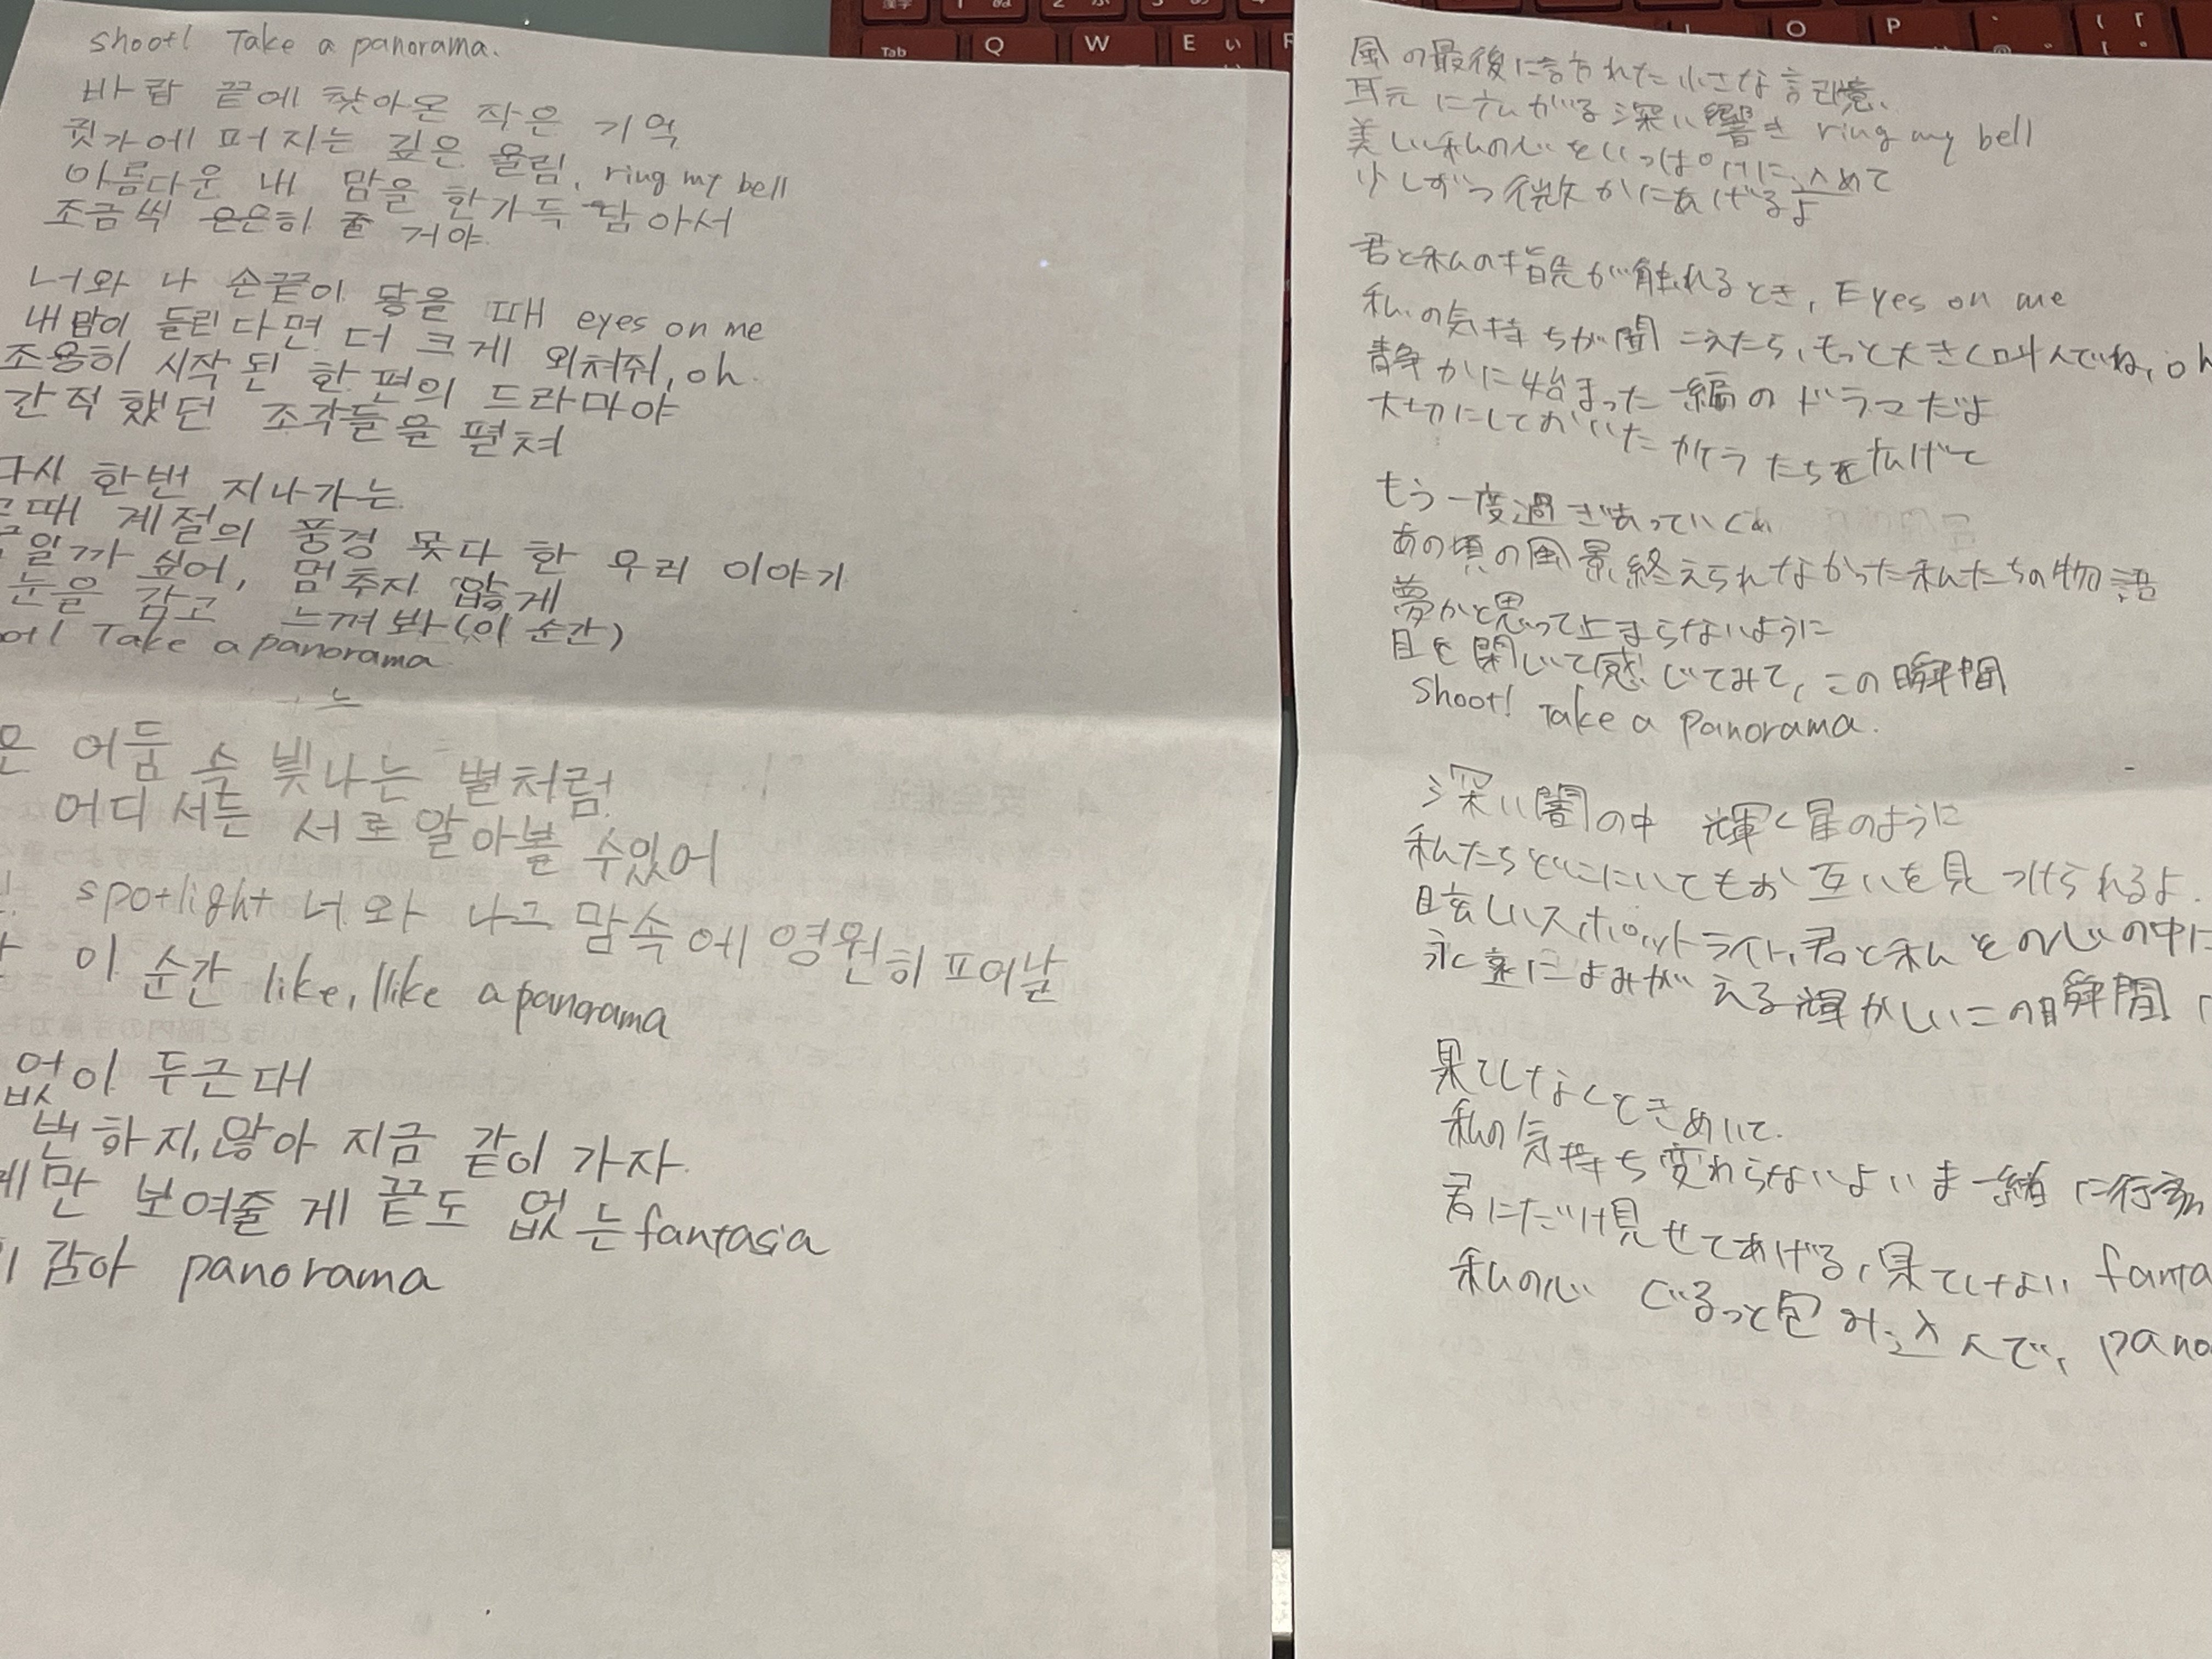 shoot! Take a panorama.
바람 끝에 찾아온 작은 기억
귓가에 퍼지는 깊은 울림, ring my bell
아름다운 내 맘을 한가득 담아서
조금씩 은은히 줄 거야
너와 나 손끝이 닿을 때 eyes on me
내 맘이 들린다면 더 크게 외쳐줘, oh
조용히 시작된 한 편의 드라마야
간직했던 조각들을 펼쳐
다시 한번 지나가는
그때 계절의 풍경 못다 한 우리 이야기
일까 싶어, 멈추지 않게
눈을 감고 느껴봐 (이 순간)
Take a panorama
어둠 속 빛나는 별처럼
어디 서든 서로 알아볼 수있어
spotlight 너와 나 그 맘속에 영원히 피어날
이 순간 like, like a panorama
없이 두근대
변하지 않아 지금 같이 가자
만 보여줄게 끝도 없는 fantasia
감아 panorama
Tab Q W E い
O P
風の最後に訪れた小さな記憶、
耳元に広がる深い響き ring my bell
美しい私の心をいっぱいに込めて
少しずつ微かにあげるよ
君と私の指先が触れるとき, Eyes on me
私の気持ちが聞こえたら、もっと大きく叫んでね, oh
静かに始まった一編のドラマだよ
大切にしておいたカケラたちを広げて
もう一度過ぎさっていく
あの頃の風景終えられなかった私たちの物語
夢かと思って止まらないように
目を閉じて感じてみて、この瞬間
Shoot! Take a panorama.
深い闇の中 輝く星のように
私たちどこにいてもお互いを見つけられるよ.
眩しいスポットライト、君と私その心の中に
永遠によみがえる輝かしいこの瞬間
果てしなくときめいて.
私の気持ち変わらないよいま一緒に行こう
君にだけ見せてあげる、果てしない fanta
私の心 ぐるっと包み込んで, pano